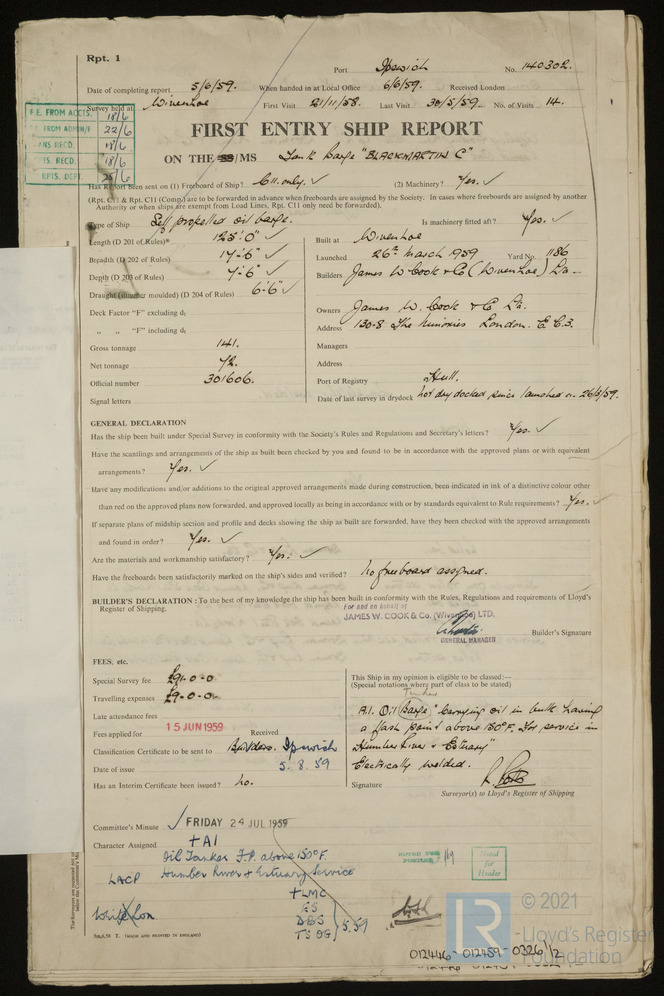 Rpt. 1
Port Ipswich No. 140302.
Date of completing report 5/6/59. When handed in at Local Office 6/6/59. Received London
Survey held at Wivenhoe First Visit 21/11/58. Last Visit 30/5/59 No. of Visits 14.
F.E. FROM ACCTS. 18/6
FROM ADMIN/F 22/6
ANS RECD. 18/6
IS. RECD. 18/6
RPTS. DEPT.
FIRST ENTRY SHIP REPORT
ON THE SS/MS Tank Barge "BLACKMARTIN C"
Has Report been sent on (1) Freeboard of Ship? C.11. only. ✓ (2) Machinery? Yes. ✓
(Rpt. C11 & Rpt. C11 (Comp.) are to be forwarded in advance when freeboards are assigned by the Society. In cases where freeboards are assigned by another
Authority or when ships are exempt from Load Lines, Rpt. C11 only need be forwarded).
Type of Ship Self propelled oil barge. Is machinery fitted aft? Yes. ✓
Length (D 201 of Rules) 125'-0" ✓
Breadth (D 202 of Rules) 17'-6" ✓
Depth (D 203 of Rules) 7'-6" ✓
Draught (summer moulded) (D 204 of Rules) 6'-6" ✓
Deck Factor "F" excluding d₁
„ „ "F" including d₁
Gross tonnage 141.
Net tonnage 72.
Official number 301606.
Signal letters
Built at Wivenhoe
Launched 26th March 1959 Yard No. 1186
Builders James W Cook & Co (Wivenhoe) Ld.
Owners James W. Cook & Co Ld.
Address 130-8 The Minories London. E.C.3.
Managers
Address
Port of Registry Hull.
Date of last survey in drydock not dry docked since launched on 26/3/59.
GENERAL DECLARATION
Has the ship been built under Special Survey in conformity with the Society's Rules and Regulations and Secretary's letters? Yes. ✓
Have the scantlings and arrangements of the ship as built been checked by you and found to be in accordance with the approved plans or with equivalent
arrangements? Yes. ✓
Have any modifications and/or additions to the original approved arrangements made during construction, been indicated in ink of a distinctive colour other
than red on the approved plans now forwarded, and approved locally as being in accordance with or by standards equivalent to Rule requirements? Yes. ✓
If separate plans of midship section and profile and decks showing the ship as built are forwarded, have they been checked with the approved arrangements
and found in order? Yes. ✓
Are the materials and workmanship satisfactory? Yes. ✓
Have the freeboards been satisfactorily marked on the ship's sides and verified? No freeboard assigned.
BUILDER'S DECLARATION : To the best of my knowledge the ship has been built in conformity with the Rules, Regulations and requirements of Lloyd's
Register of Shipping.
For and on behalf of
JAMES W. COOK & Co. (Wivenhoe) LTD.
GENERAL MANAGER
Builder's Signature
FEES, etc.
Special Survey fee £91-0-0
Travelling expenses £9-0-0
Late attendance fees
Fees applied for 15 JUN 1959 Received
Classification Certificate to be sent to Builders. Ipswich
Date of issue 5.8.59
Has an Interim Certificate been issued? No.
This Ship in my opinion is eligible to be classed :—
(Special notations where part of class to be stated)
Tanker
A.1. Oil Barge "Carrying oil in bulk having
a flash point above 150°F. For service in
Humber River & Estuary"
Electrically welded.
Signature
Surveyor(s) to Lloyd's Register of Shipping
Committee's Minute ✓ FRIDAY 24 JUL 1959
Character Assigned +A1
Oil Tanker F.P. above 150°F.
LACP Humber River & Estuary Service
+LMC
ES
DBS
TS OG 5.59
NOTED FOR
POSTING
Noted
for
Header
(MADE AND PRINTED IN ENGLAND)
LR
© 2021
Lloyd's Register
Foundation
012446-012459-0326 1/2